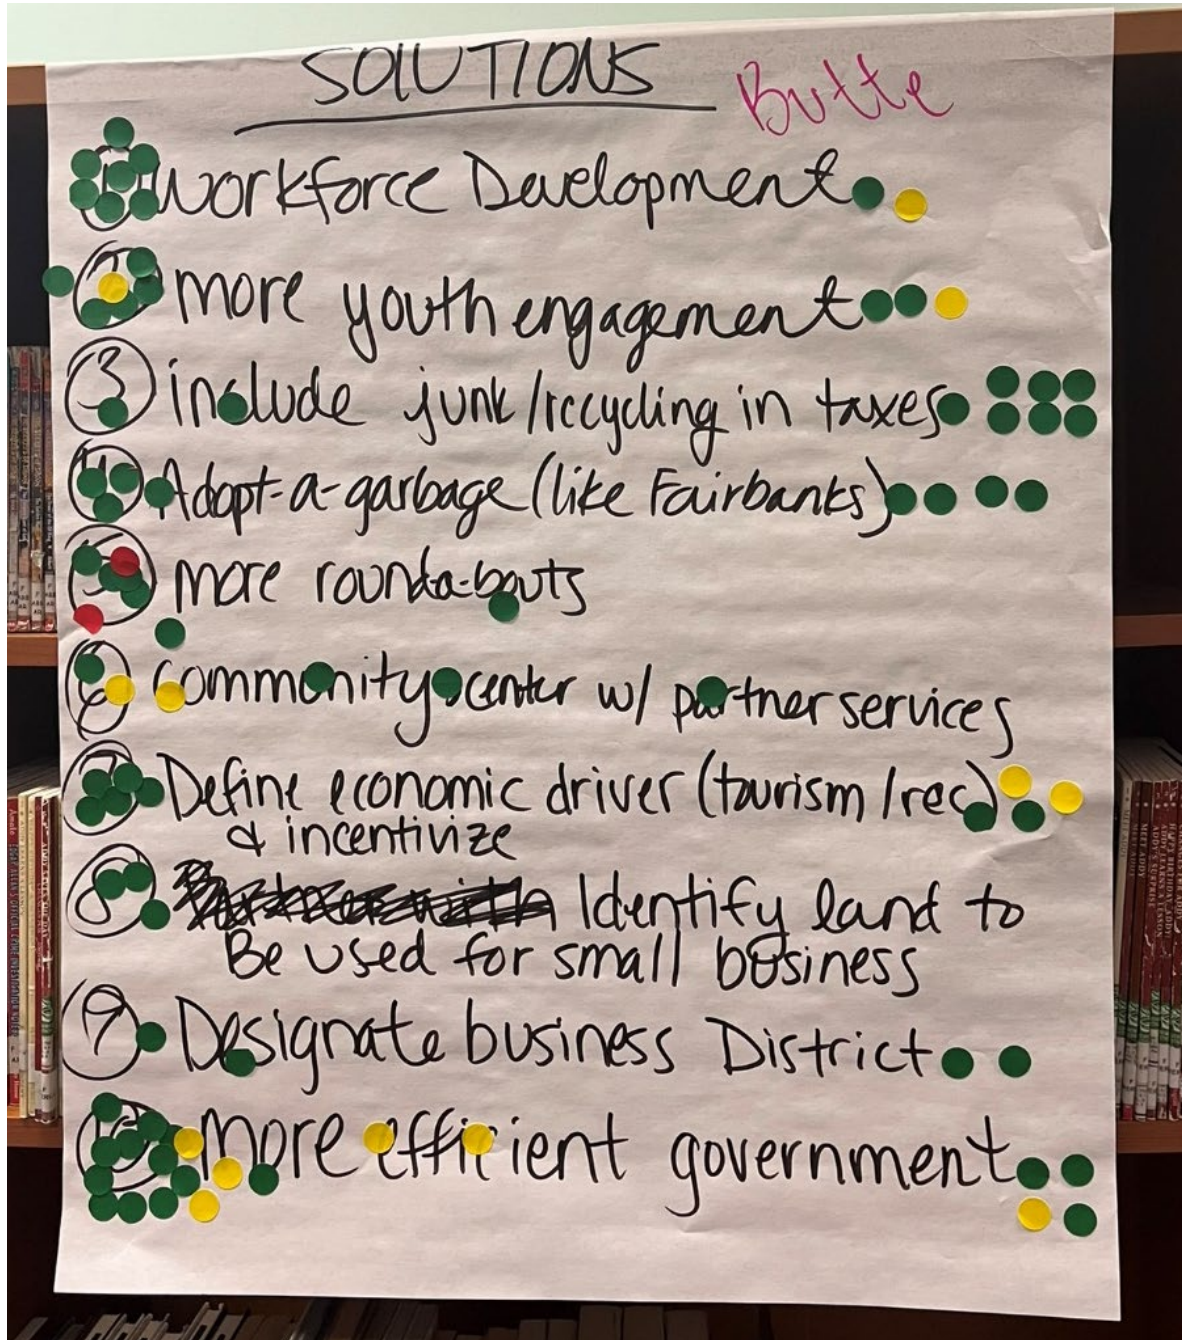 SOLUTIONS
Butte
Workforce Development
more youth engagement
3 include junk/recycling in taxes
4 Adopt-a-garbage (like Fairbanks)
5 more rounda-bouts
6 Community center w/ partner services
7 Define economic driver (tourism/rec)
& incentivize
8 Identify land to
Be used for small business
9 Designate business District
10 more efficient government